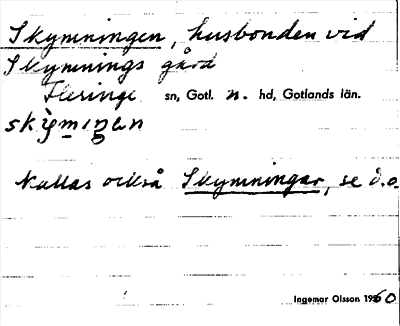 Skymningen, husbonden vid
Skymnings gård
Fleringe sn, Gotl. n. hd, Gotlands län.
Kallas också Skymningar, se d.o.
Ingemar Olsson 1960